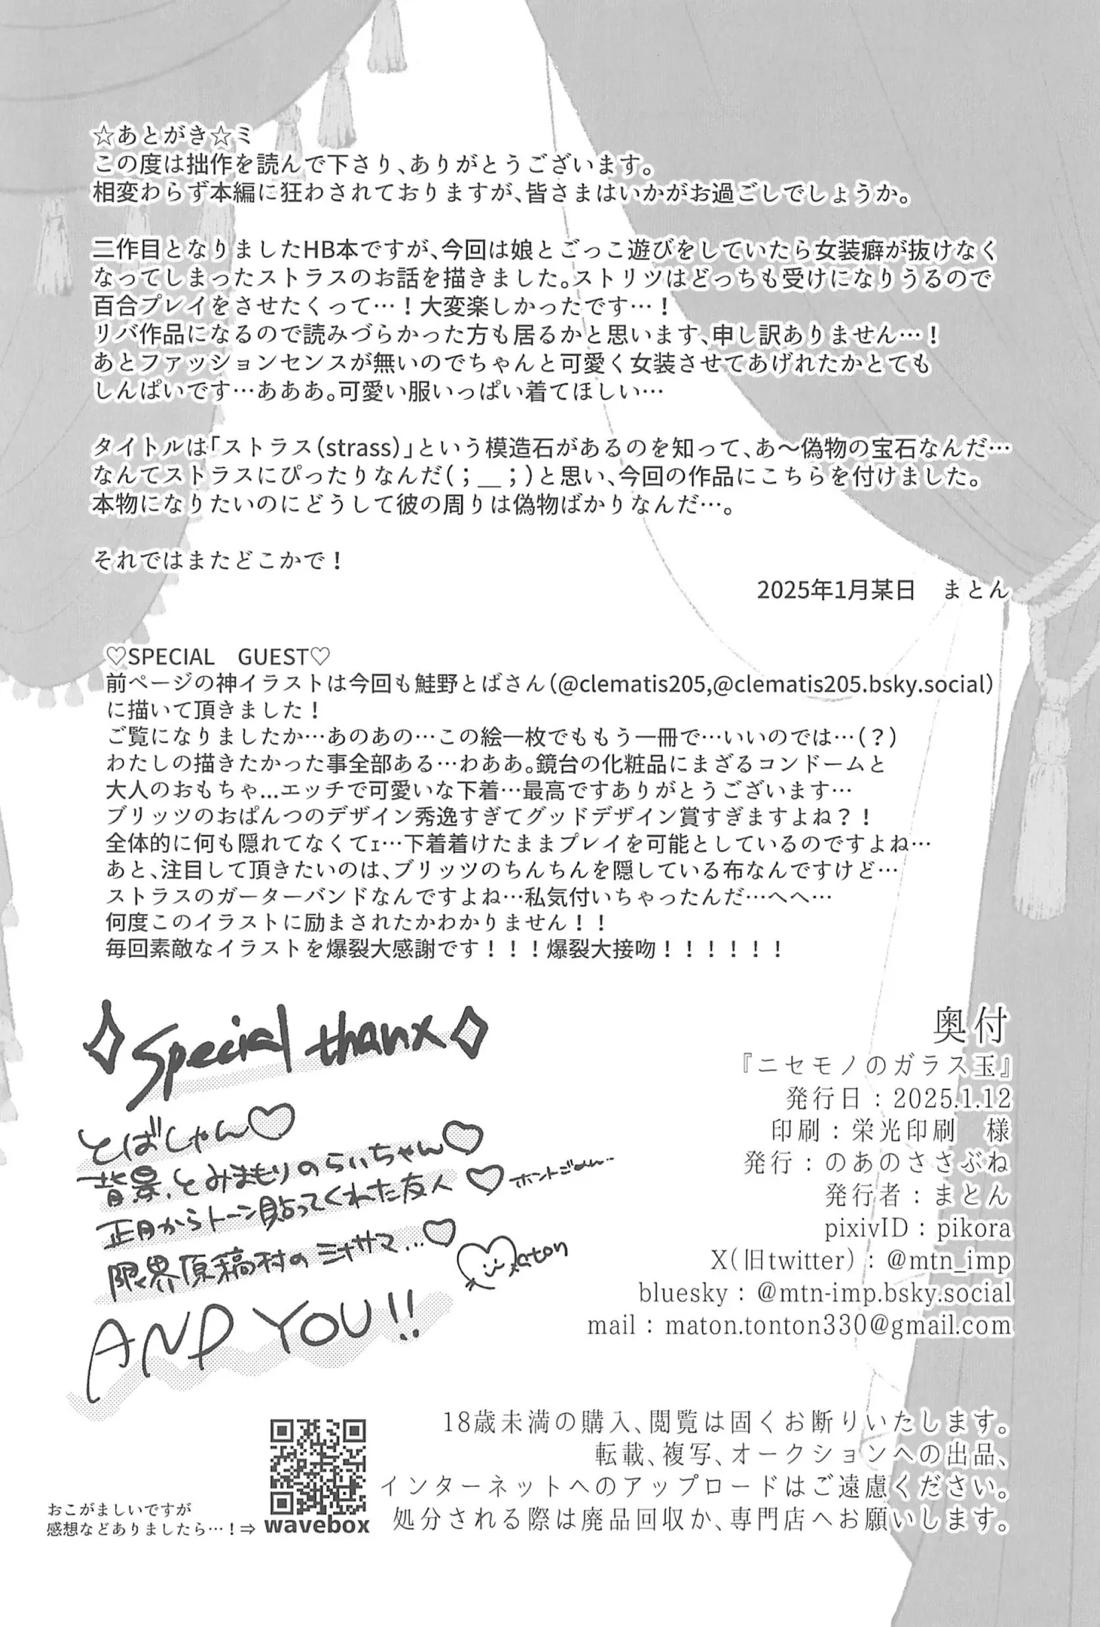 ☆あとがき☆ミ
この度は拙作を読んで下さり、ありがとうございます。
相変わらず本編に狂わされておりますが、皆さまはいかがお過ごしでしょうか。
二作目となりましたHB本ですが、今回は娘とごっこ遊びをしていたら女装癖が抜けなく
なってしまったストラスのお話を描きました。ストリツはどっちも受けになりうるので
百合プレイをさせたくって…！大変楽しかったです…！
リバ作品になるので読みづらかった方も居るかと思います、申し訳ありません…！
あとファッションセンスが無いのでちゃんと可愛く女装させてあげれたかとても
しんぱいです…あああ。可愛い服いっぱい着てほしい…
タイトルは「ストラス（strass）」という模造石があるのを知って、あ～偽物の宝石なんだ…
なんてストラスにぴったりなんだ（；＿；）と思い、今回の作品にこちらを付けました。
本物になりたいのにどうして彼の周りは偽物ばかりなんだ…。
それではまたどこかで！
2025年1月某日　まとん
♡SPECIAL　GUEST♡
前ページの神イラストは今回も鮭野とばさん（@clematis205,@clematis205.bsky.social）
に描いて頂きました！
ご覧になりましたか…あのあの…この絵一枚でももう一冊で…いいのでは…（？）
わたしの描きたかった事全部ある…わああ。鏡台の化粧品にまざるコンドームと
大人のおもちゃ…エッチで可愛いな下着…最高ですありがとうございます…
ブリッツのおぱんつのデザイン秀逸すぎてグッドデザイン賞すぎますよね？！
全体的に何も隠れてなくてｪ…下着着けたままプレイを可能としているのですよね…
あと、注目して頂きたいのは、ブリッツのちんちんを隠している布なんですけど…
ストラスのガーターバンドなんですよね…私気付いちゃったんだ…へへ…
何度このイラストに励まされたかわかりません！！
毎回素敵なイラストを爆裂大感謝です！！！爆裂大接吻！！！！！！
Special thanx
とばしゃん♡
背景、とみまもりのらいちゃん♡
正月からトーン貼ってくれた友人♡ホントごめん…
限界原稿村のミナサマ…♡
maton
AND YOU!!
奥付
『ニセモノのガラス玉』
発行日：2025.1.12
印刷：栄光印刷　様
発行：のあのささぶね
発行者：まとん
pixivID：pikora
X（旧twitter）：@mtn_imp
bluesky：@mtn-imp.bsky.social
mail：maton.tonton330@gmail.com
18歳未満の購入、閲覧は固くお断りいたします。
転載、複写、オークションへの出品、
インターネットへのアップロードはご遠慮ください。
処分される際は廃品回収か、専門店へお願いします。
おこがましいですが
感想などありましたら…！⇒
wavebox